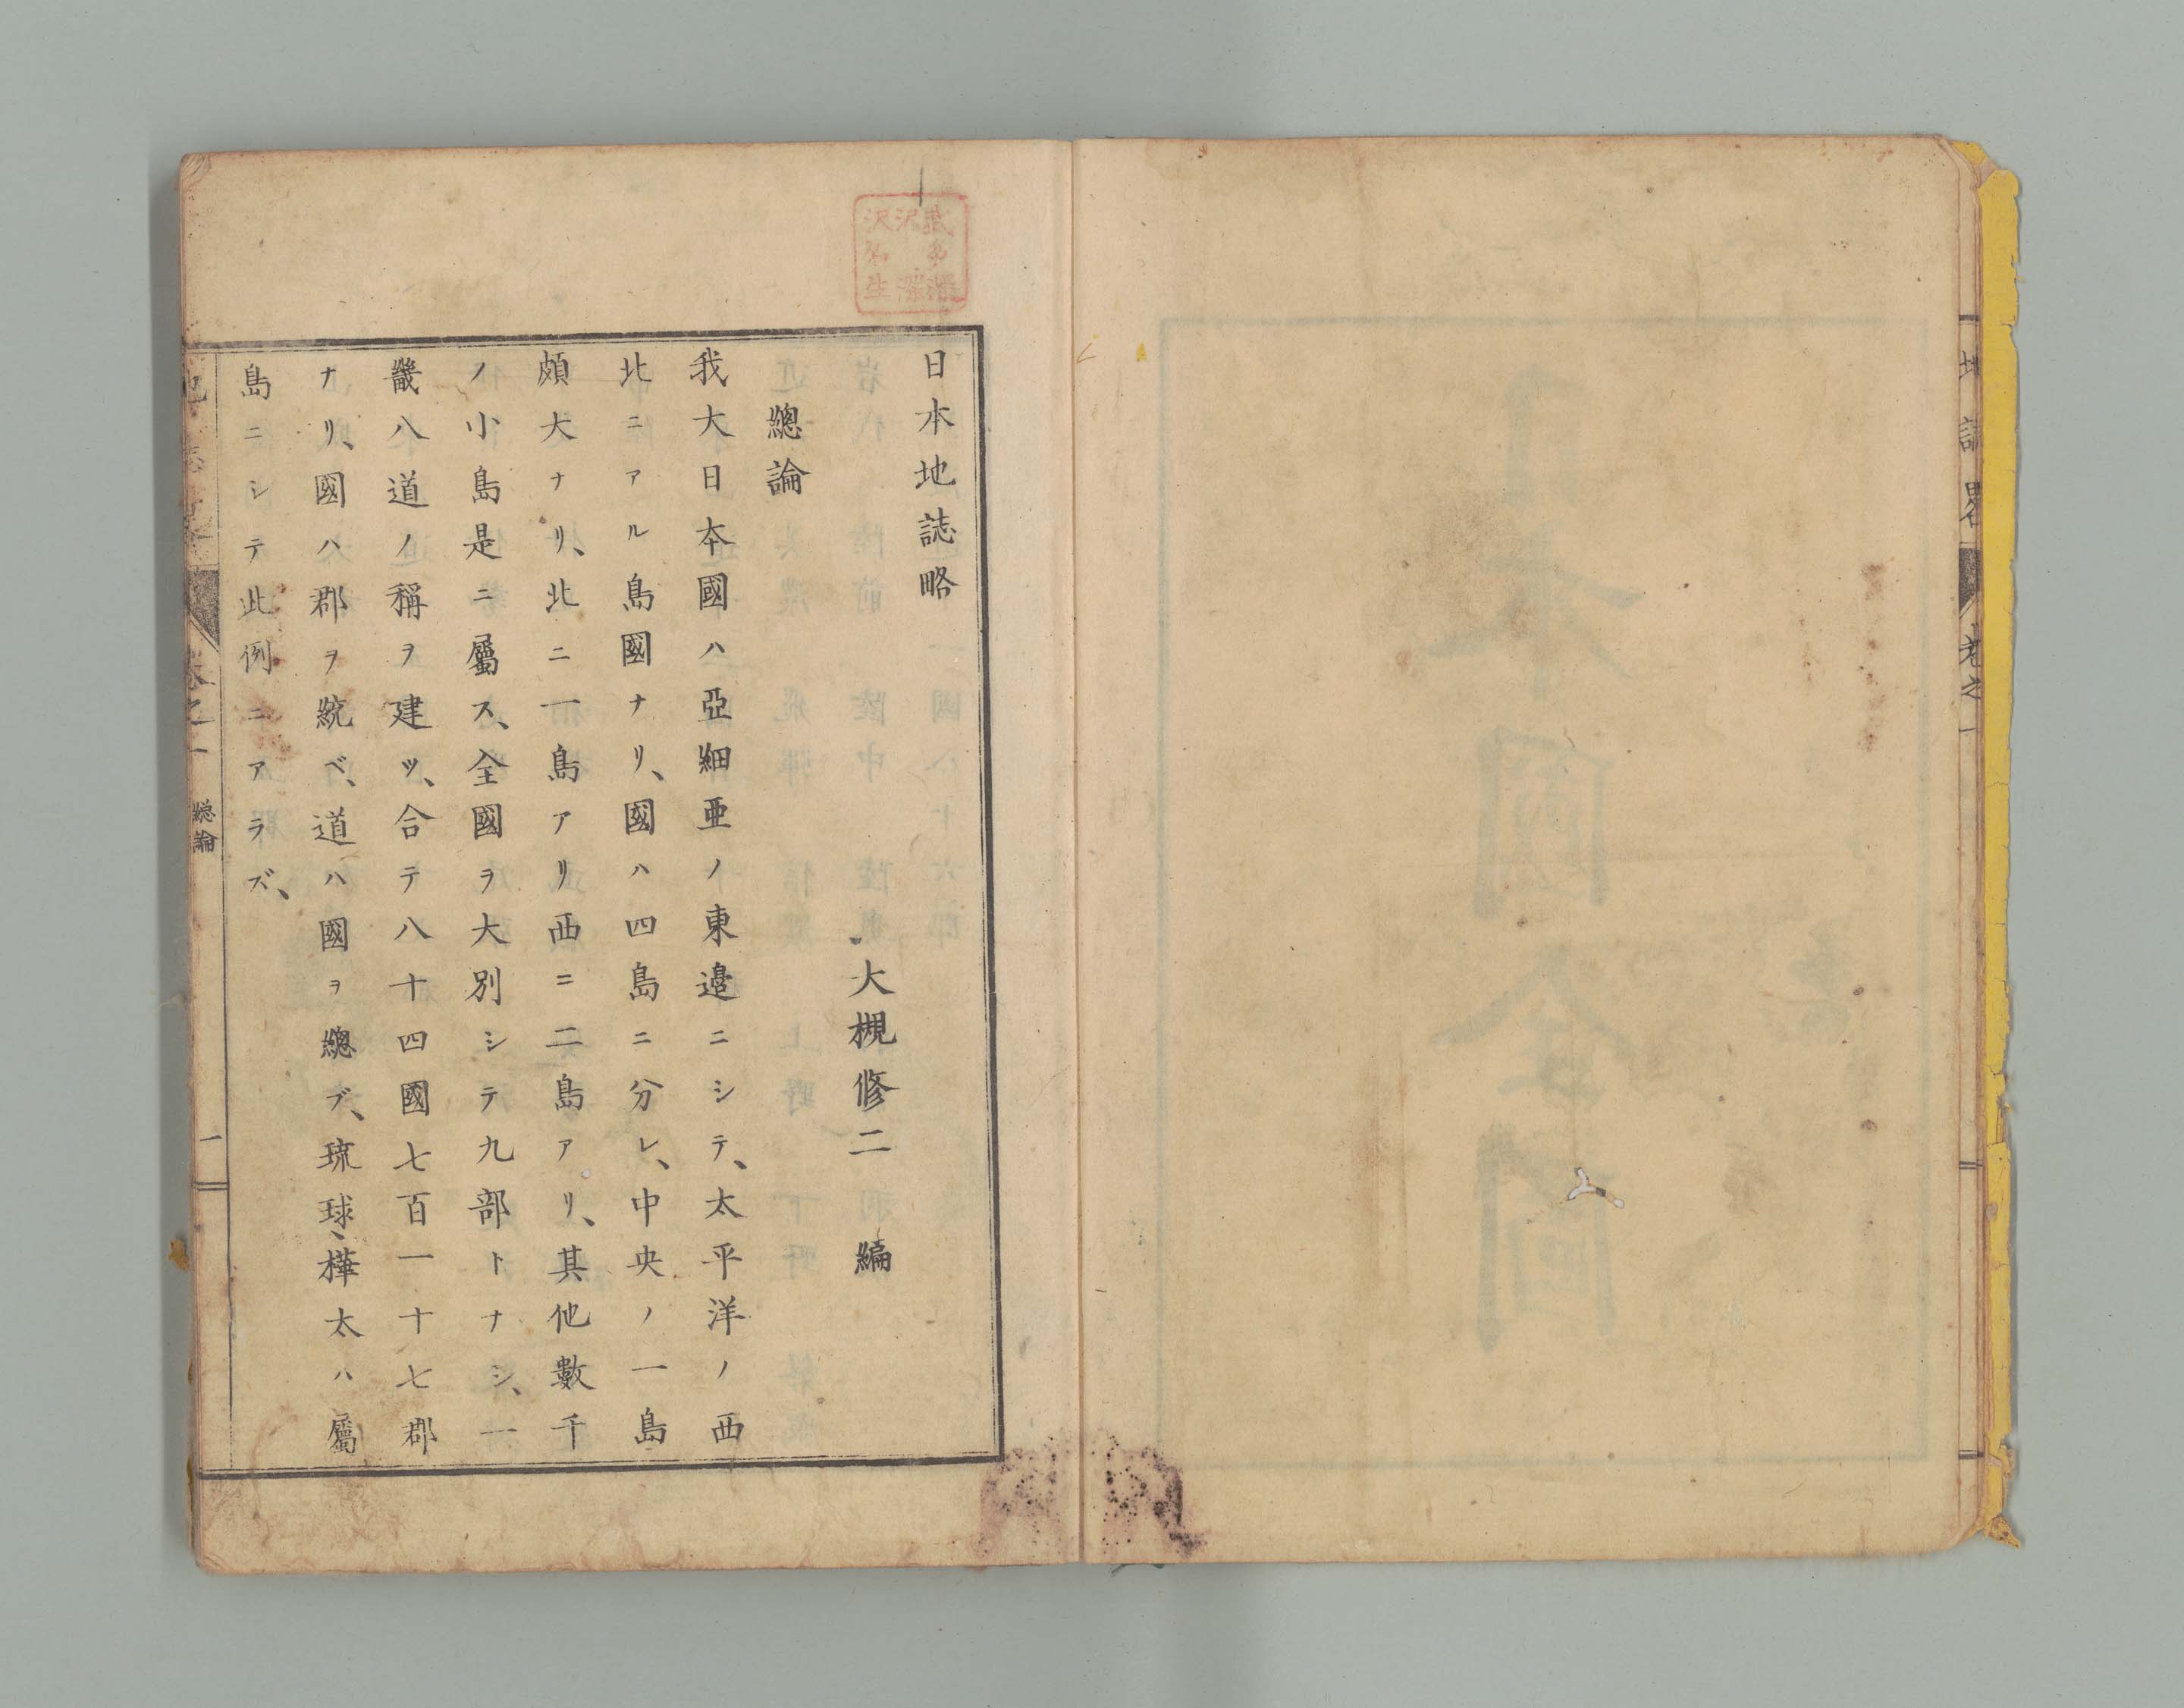 日本地誌略
大槻修二 編
總論
我大日本國ハ亞細亜ノ東邊ニシテ、太平洋ノ西
北ニアル島國ナリ、國ハ四島ニ分レ、中央ノ一島
頗大ナリ、北ニ一島アリ西ニ二島アリ、其他數千
ノ小島是ニ屬ス、全國ヲ大別シテ九部トナシ、一
畿八道ノ稱ヲ建ツ、合テ八十四國七百一十七郡
ナリ、國ハ郡ヲ統ベ、道ハ國ヲ總ブ、琉球、樺太ハ屬
島ニシテ此例ニアラズ、
總論
一